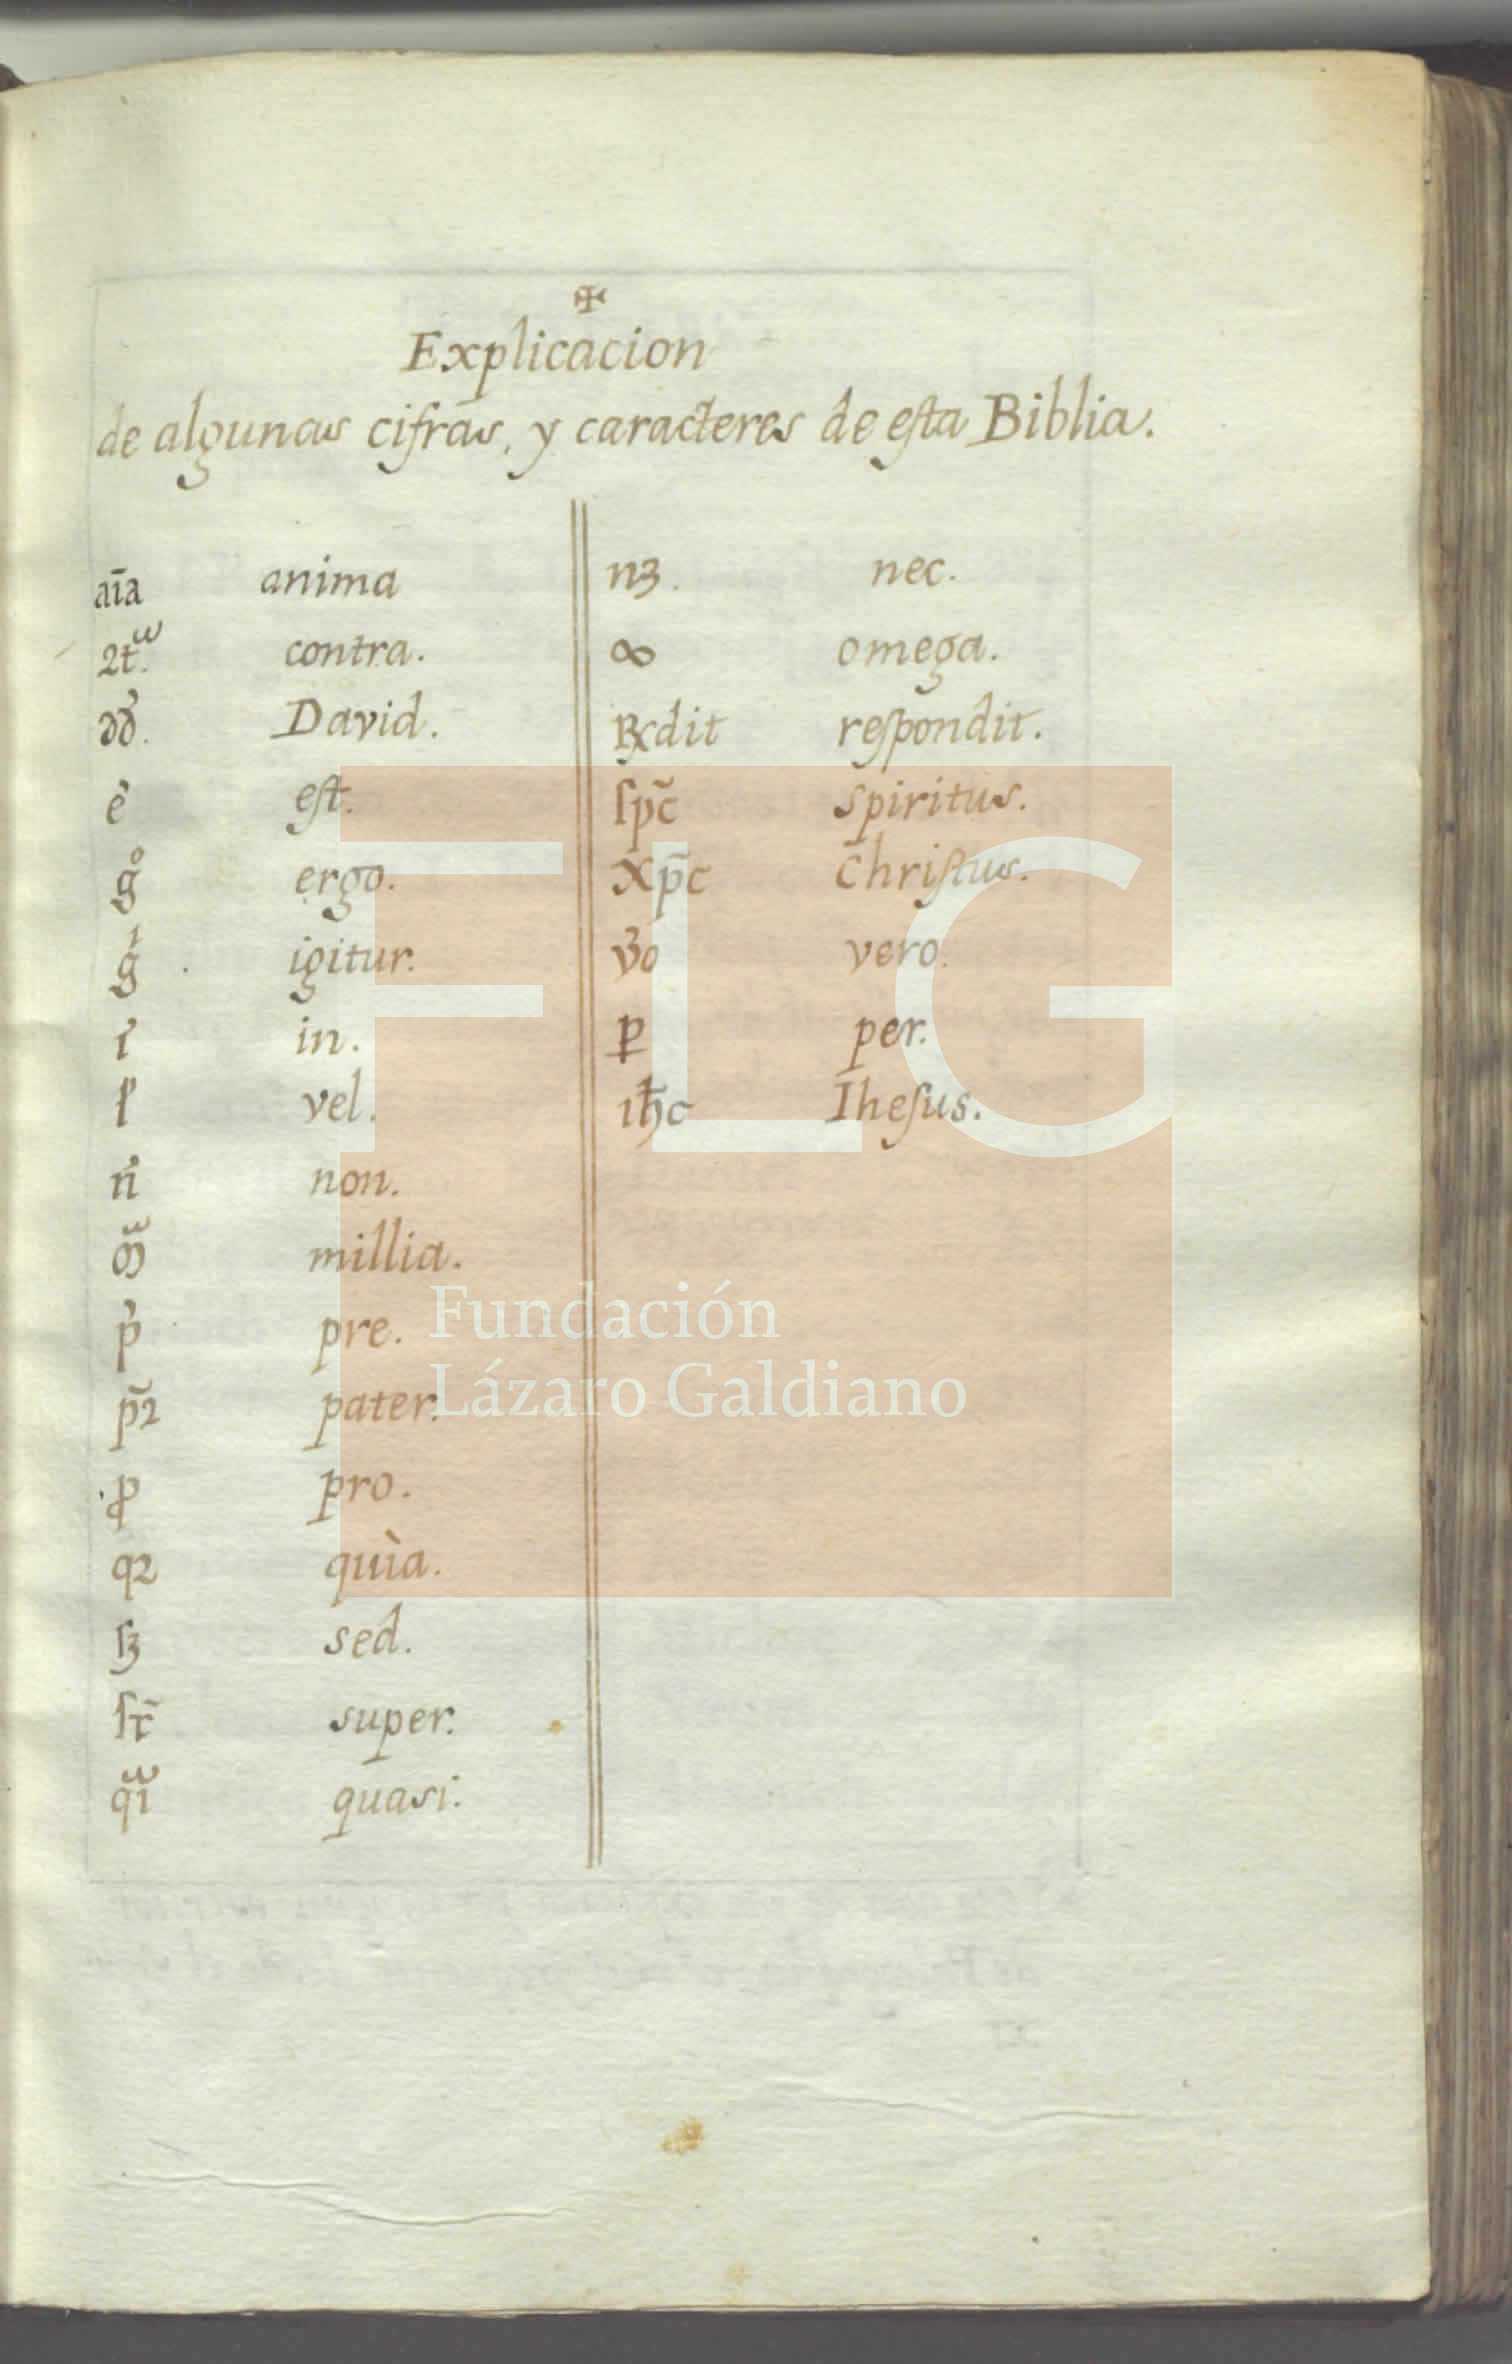 ✠
Explicacion
de algunas cifras, y caracteres de eſta Biblia.
aı̄a anima
2t. contra.
dd̓. David.
e̓ eſt.
g̊ ergo.
gⁱ igitur.
ı̓ in.
ł vel.
n̓ non.
millia.
p̓ pre.
p̃2 pater.
ꝓ pro.
q2 quìa.
ſꝫ sed.
ſr̃ super.
quasi.
nꝫ. nec.
∞ omega.
℞dit reſpondit.
ſpc̃ spiritus.
Xp̄c Chriſtus.
v̓o vero.
ꝑ per.
ıħc Iheſus.
FLG
Fundación
Lázaro Galdiano